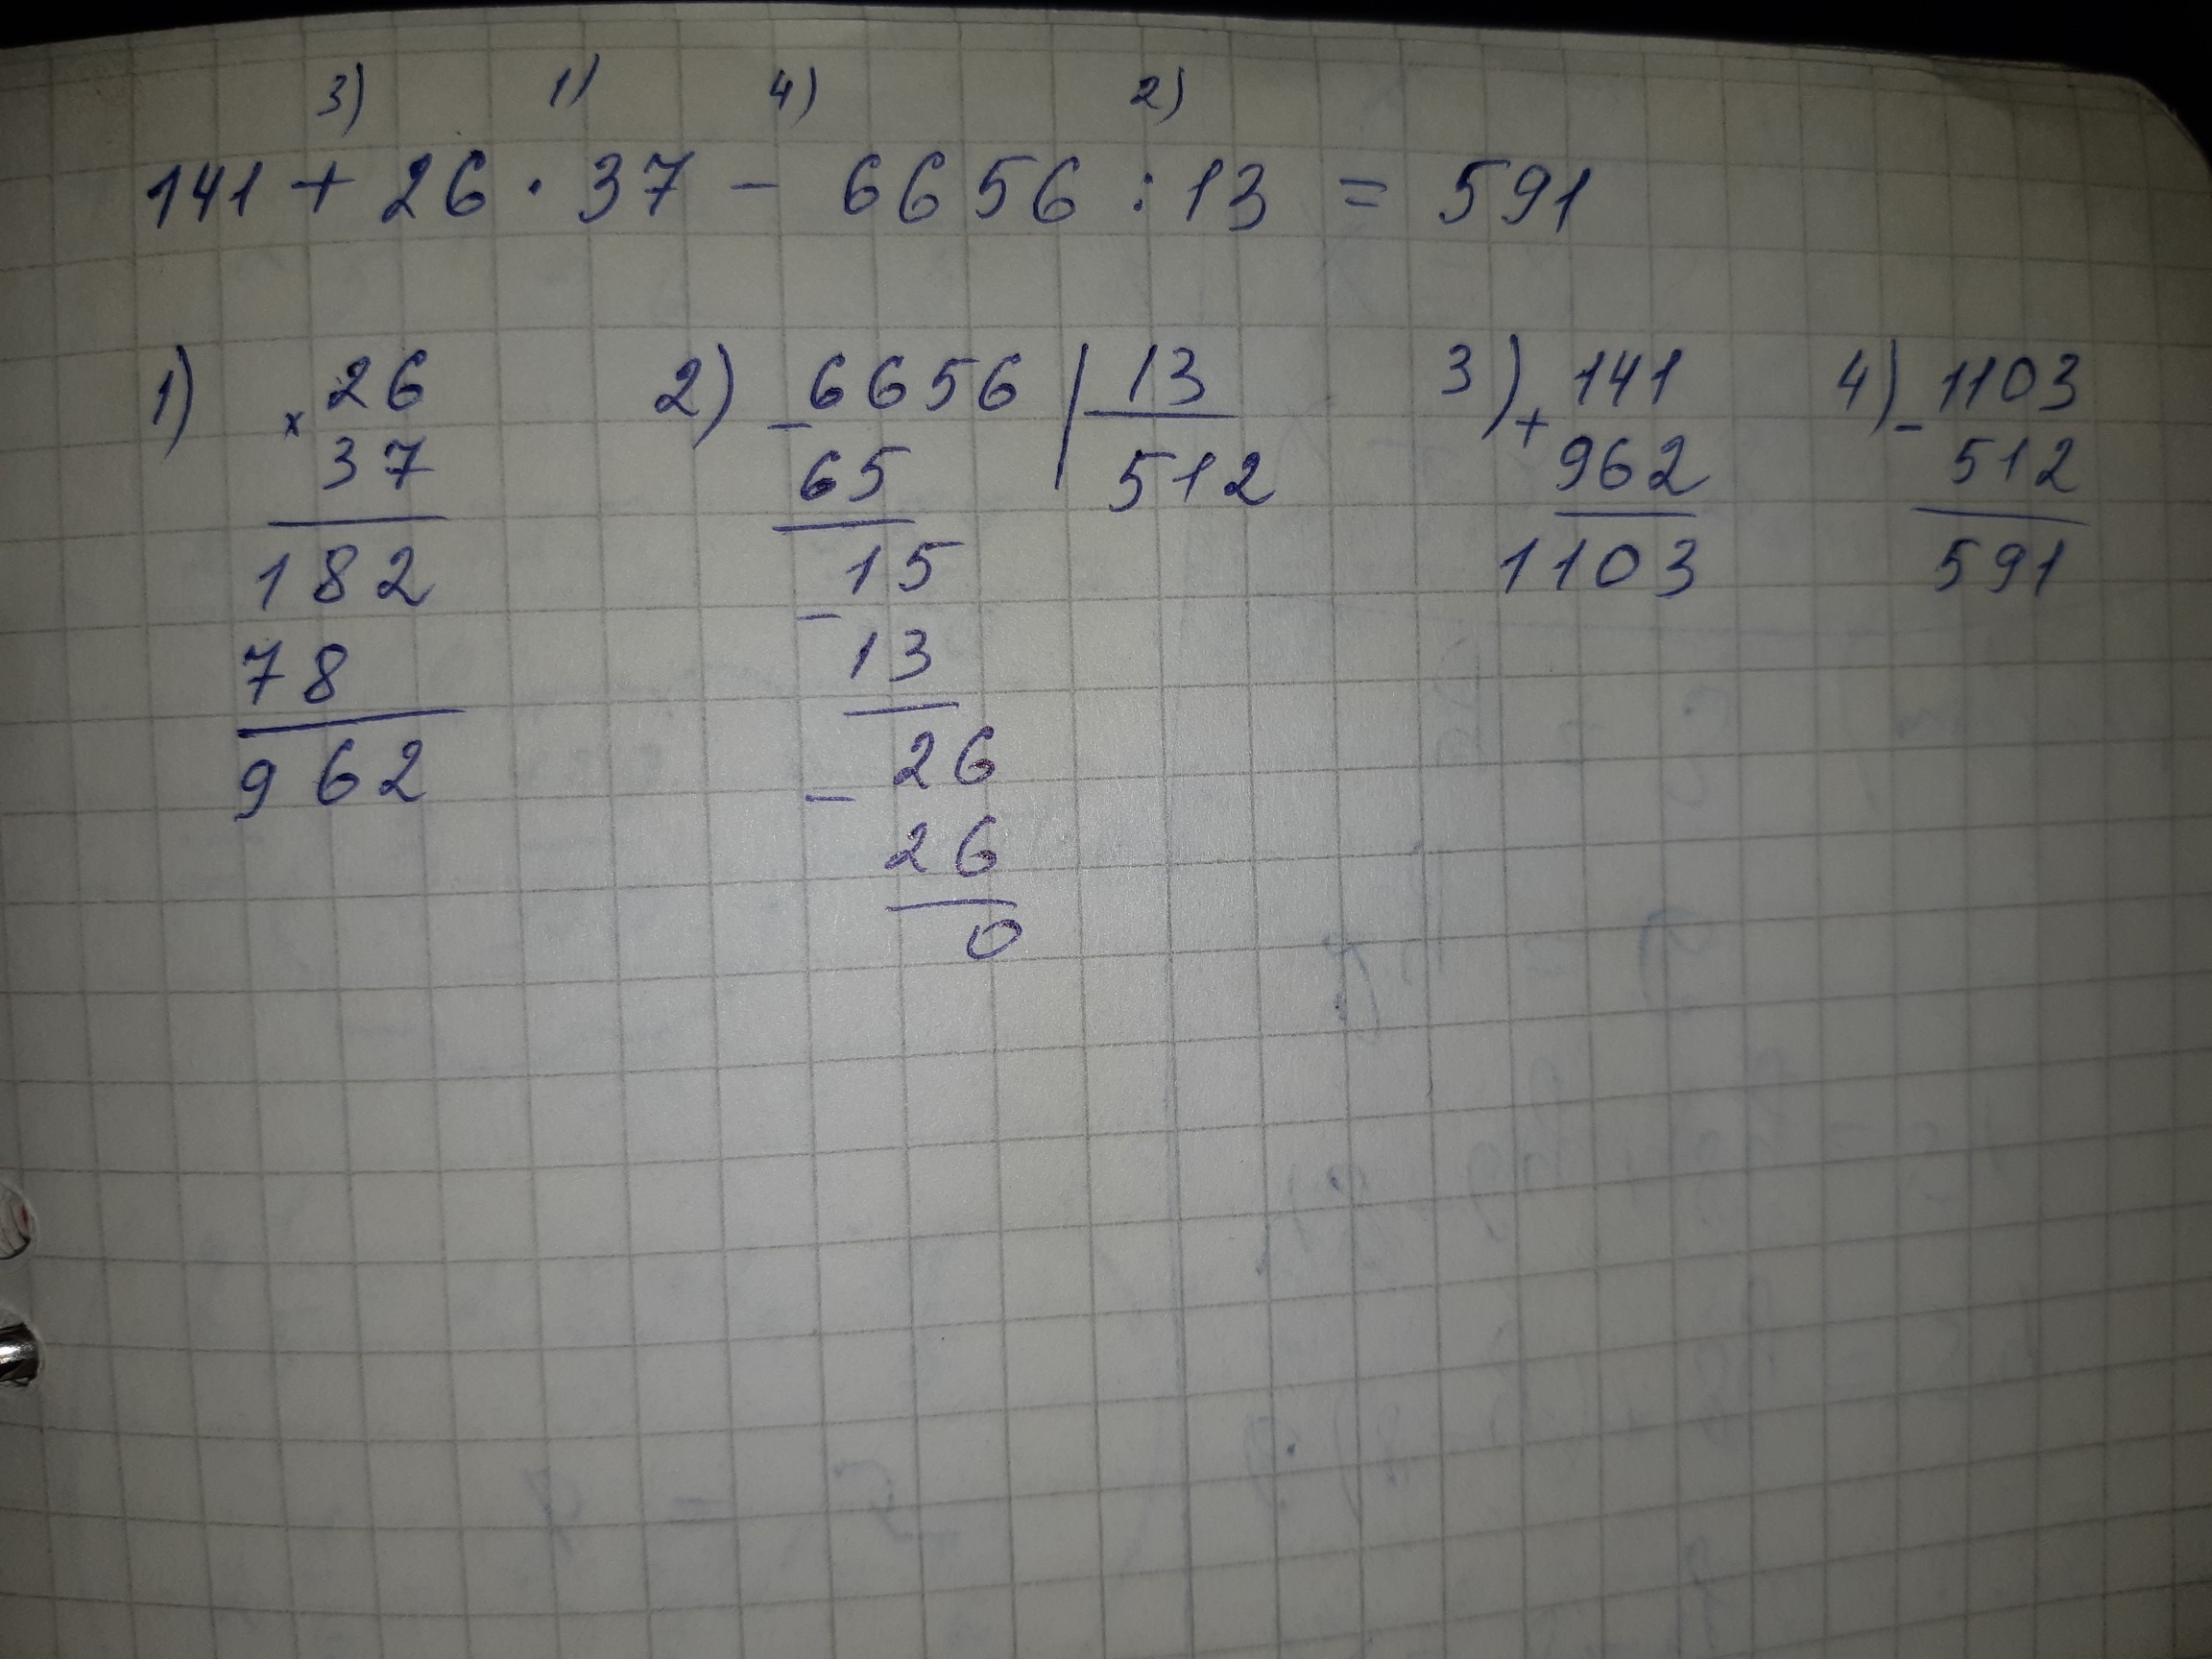 3) 1) 4) 2)
141 + 26 · 37 - 6656 : 13 = 591
1) 26
× 37
182
78
962
2) - 6656 | 13
65 512
15
- 13
26
- 26
0
3) 141
+ 962
1103
4) - 1103
512
591